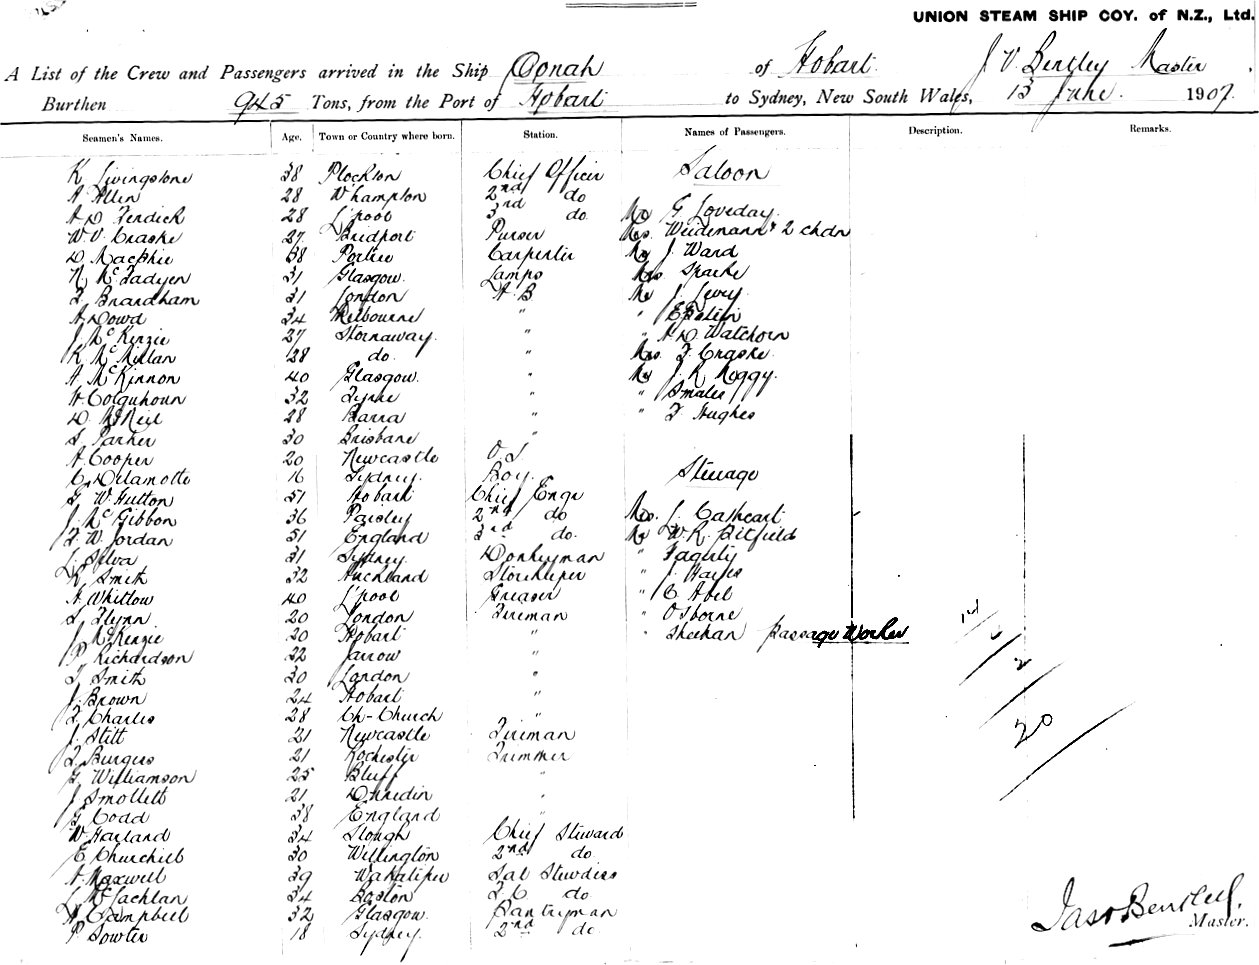 UNION STEAM SHIP COY. of N.Z., Ltd.
A List of the Crew and Passengers arrived in the Ship Oonah of Hobart J V Bentley Master
Burthen 945 Tons, from the Port of Hobart to Sydney, New South Wales, 13 June. 1907.
Seamen's Names. Age. Town or Country where born. Station. Names of Passengers. Description. Remarks.
K Livingstone 38 Plockton Chief Officer Saloon
A Allen 28 W'hampton 2nd do
A D Fendick 28 L'pool 3rd do. Mr G Loveday
W. V. Craske 27 Bridport Purser Mrs. Weidemann & 2 chdn
D. Macphie 38 Carpenter Mr J. Ward
N McFadyen 31 Glasgow. Lamps Mrs Sparke
F Brandham 31 London A. B Mr J. Levy
A Dowd 34 Melbourne " " Epstein
J McKenzie 27 Stornaway. " " A D Watchorn
K. McMillan 28 do. " Mrs. F. Craske
A McKinnon 40 Glasgow. " Mr J. R Meggy.
A Colquhoun 32 " " Smales
D. McNeil 28 Barra " " F Hughes
S Parker 30 Brisbane "
A Cooper 20 Newcastle O. S
C. Delamotte 16 Sydney. Boy. Steerage
G W. Hutton 51 Hobart Chief Engr
J. McGibbon 36 Paisley 2nd do Mrs. J. Cathcart
F. W. Jordan 51 England 3rd do. Mr W. R. Pitfield
L. Silva 31 Sydney. Donkeyman " Fagerty
R Smith 32 Auckland Storekeeper " J. Hayes
A Whitlow 40 L'pool Greaser " C Abel
S. Flynn 20 London Fireman " Osborne
J McKenzie 20 Hobart " " Sheehan passage Worker
P. Richardson 22 Jarrow "
T. Smith 30 London "
J. Brown 24 Hobart "
F Charles 28 Ch-Church " 20
J. Stitt 21 Newcastle Fireman
F. Burgess 21 Rochester Trimmer
G. Williamson 25 Bluff "
J Smollett 21 Dunedin "
G Codd 38 England "
W. Harland 34 Slough Chief Steward
E Churchill 30 Wellington 2nd do
A Maxwell 39 Wakatipu Sal Stewdess
L McLachlan 34 Boston F. C do
A Campbell 32 Glasgow. Pantryman
P Sowter 18 Sydney. 2nd do
Jas V Bentley.
Master.